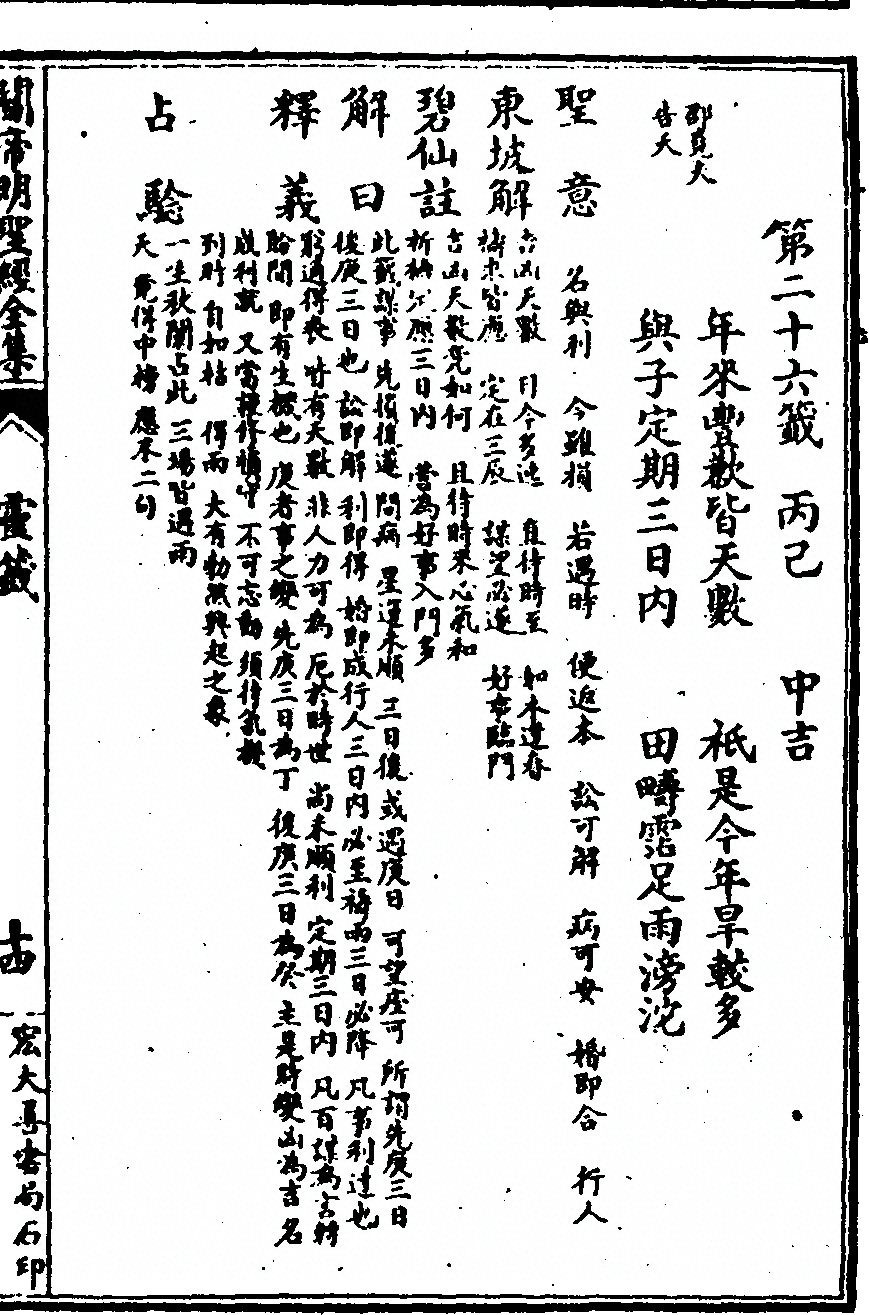 第二十六籤　丙己　中吉
邵堯夫
告天
年來豐歉皆天數　祇是今年旱較多
與子定期三日內　田疇霑足雨滂沱
聖意　名與利　今雖損　若遇時　便返本　訟可解　病可安　婚即合　行人
東坡解　吉凶天數　目今多迍　直待時至　如木逢春
禱求皆應　定在三辰　謀望必遂　好事臨門
碧仙註　吉凶天數竟如何　且待時來心氣和
祈禱只應三日內　營為好事入門多
解曰　此籤謀事　先損後遂　問病　星運未順　三日後　或遇庚日　可望痊可　所謂先庚三日
後庚三日也　訟即解　利即得　婚即成　行人三日內必至　禱雨三日必降　凡事利達也
釋義　窮通得喪　皆有天數　非人力可為　厄於時世　尚未順利　定期三日內　凡百謀為　吉
盼間　即有生機也　庚者事之變　先庚三日為丁　後庚三日為癸　主是時變凶為吉　名
成利就　又當積修禱中　不可忘動　須待氣機
到時　自如枯　得雨　大有勃然興起之象
占驗　一生秋闈占此　三場皆遇雨
天　竟得中榜　應不二句
關帝明聖經全集
靈籤
十四
宏大善書局石印